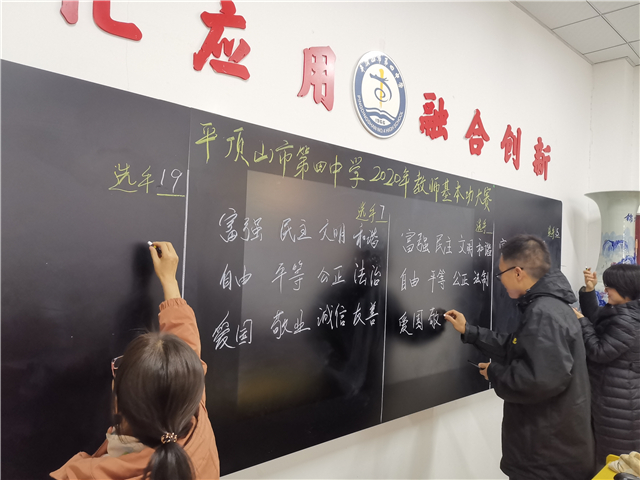 应用 融合创新
平顶山市第四中学2020年教师基本功大赛
选手19
选手7
富强 民主 文明 和谐
自由 平等 公正 法治
爱国 敬业 诚信 友善
选手
富强 民主 文明 和谐
自由 平等 公正 法制
爱国 敬